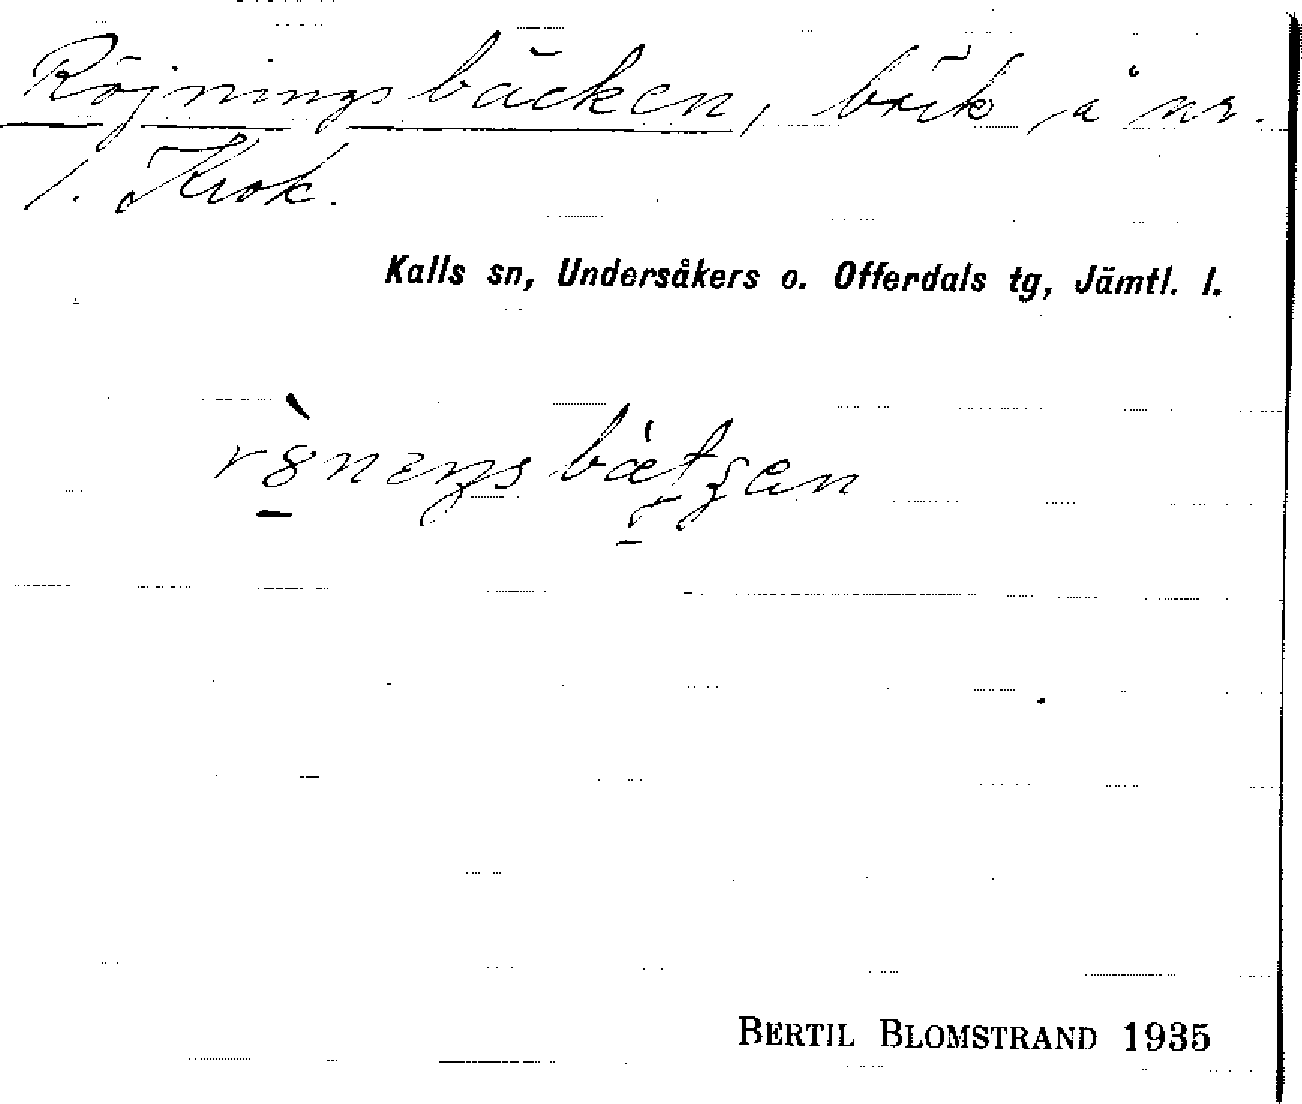 Röjningsbäcken, bäck å nr.
1. Krok.
Kalls sn, Undersåkers o. Offerdals tg, Jämtl. l.
BERTIL BLOMSTRAND 1935